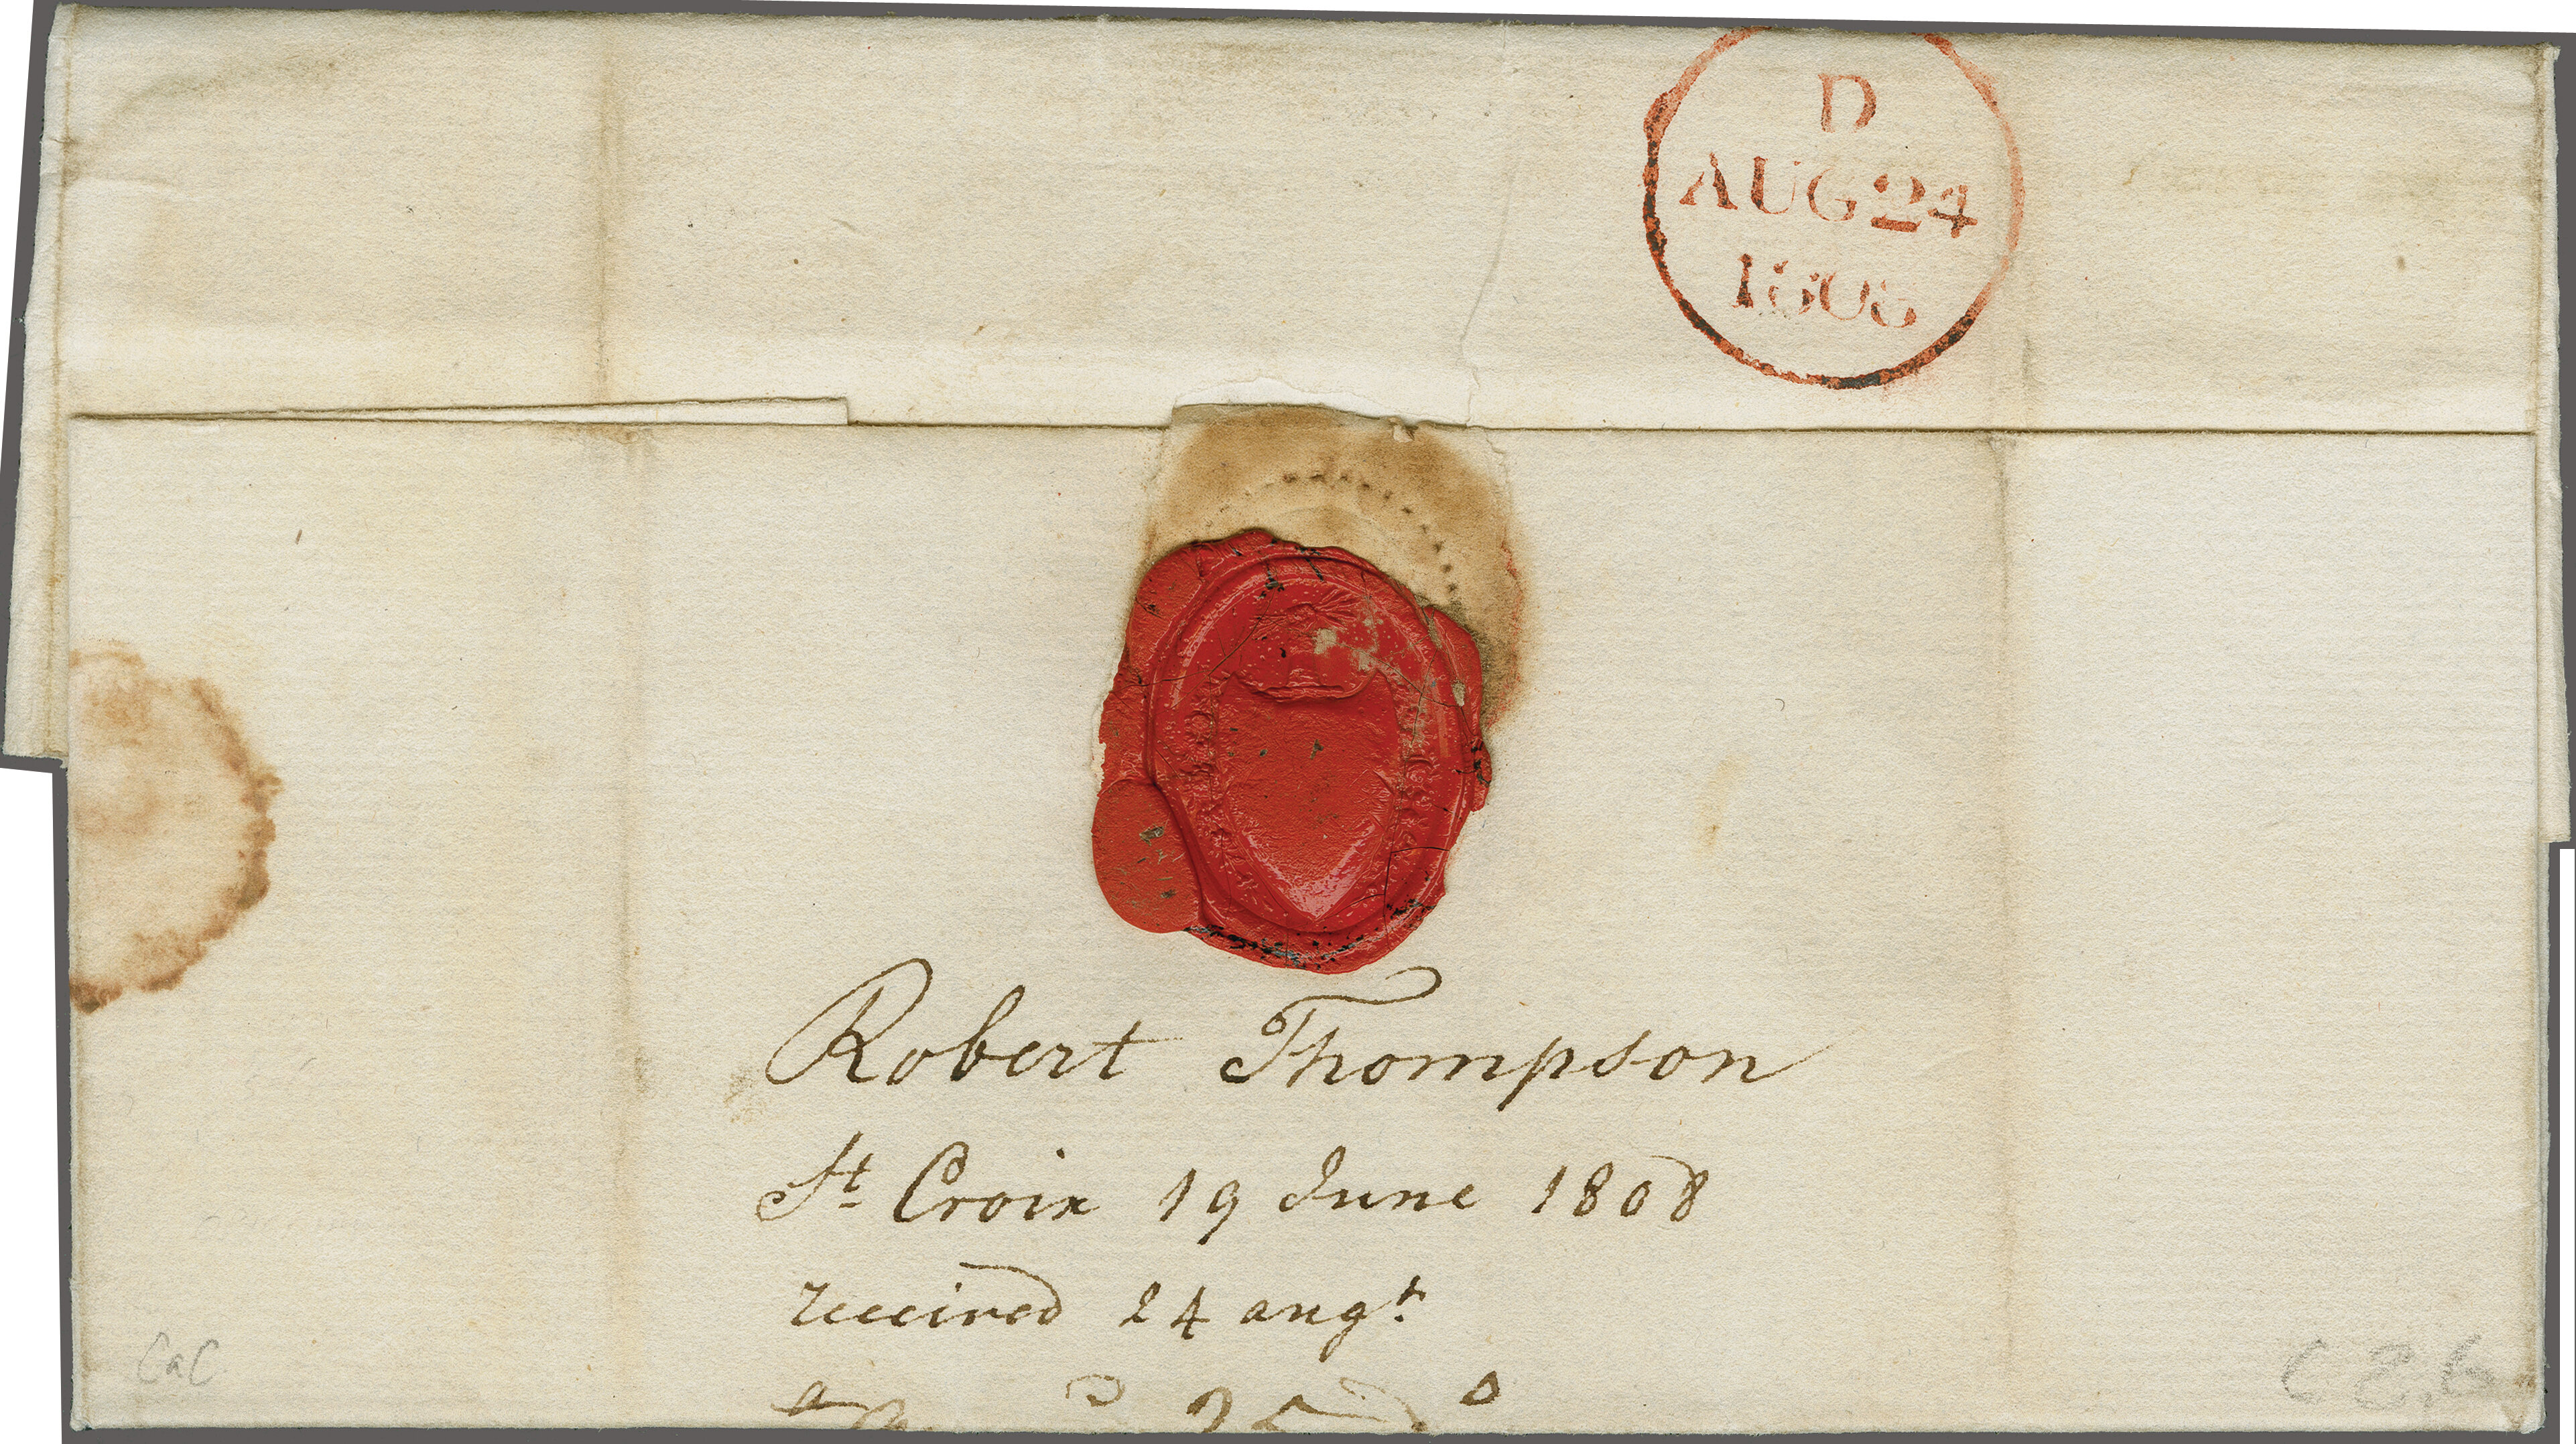 D
AUG 24
1808
Robert Thompson
St Croix 19 June 1808
received 24 augt.
CaC